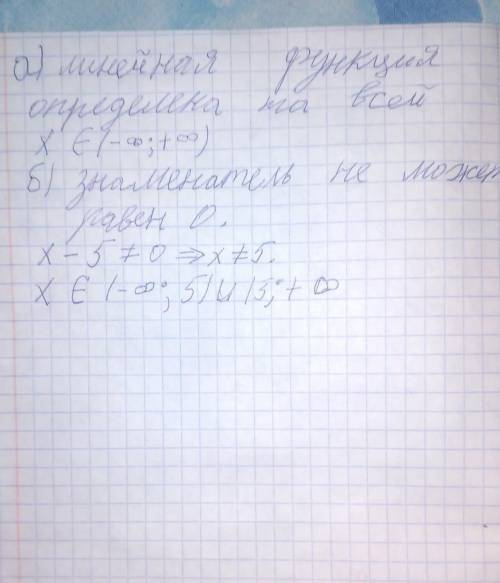 а) линейная функция
определена на всей
x ∈ (-∞; +∞)
б) знаменатель не может
равен 0.
x - 5 ≠ 0 ⇒ x ≠ 5.
x ∈ (-∞; 5) ∪ (5; + ∞